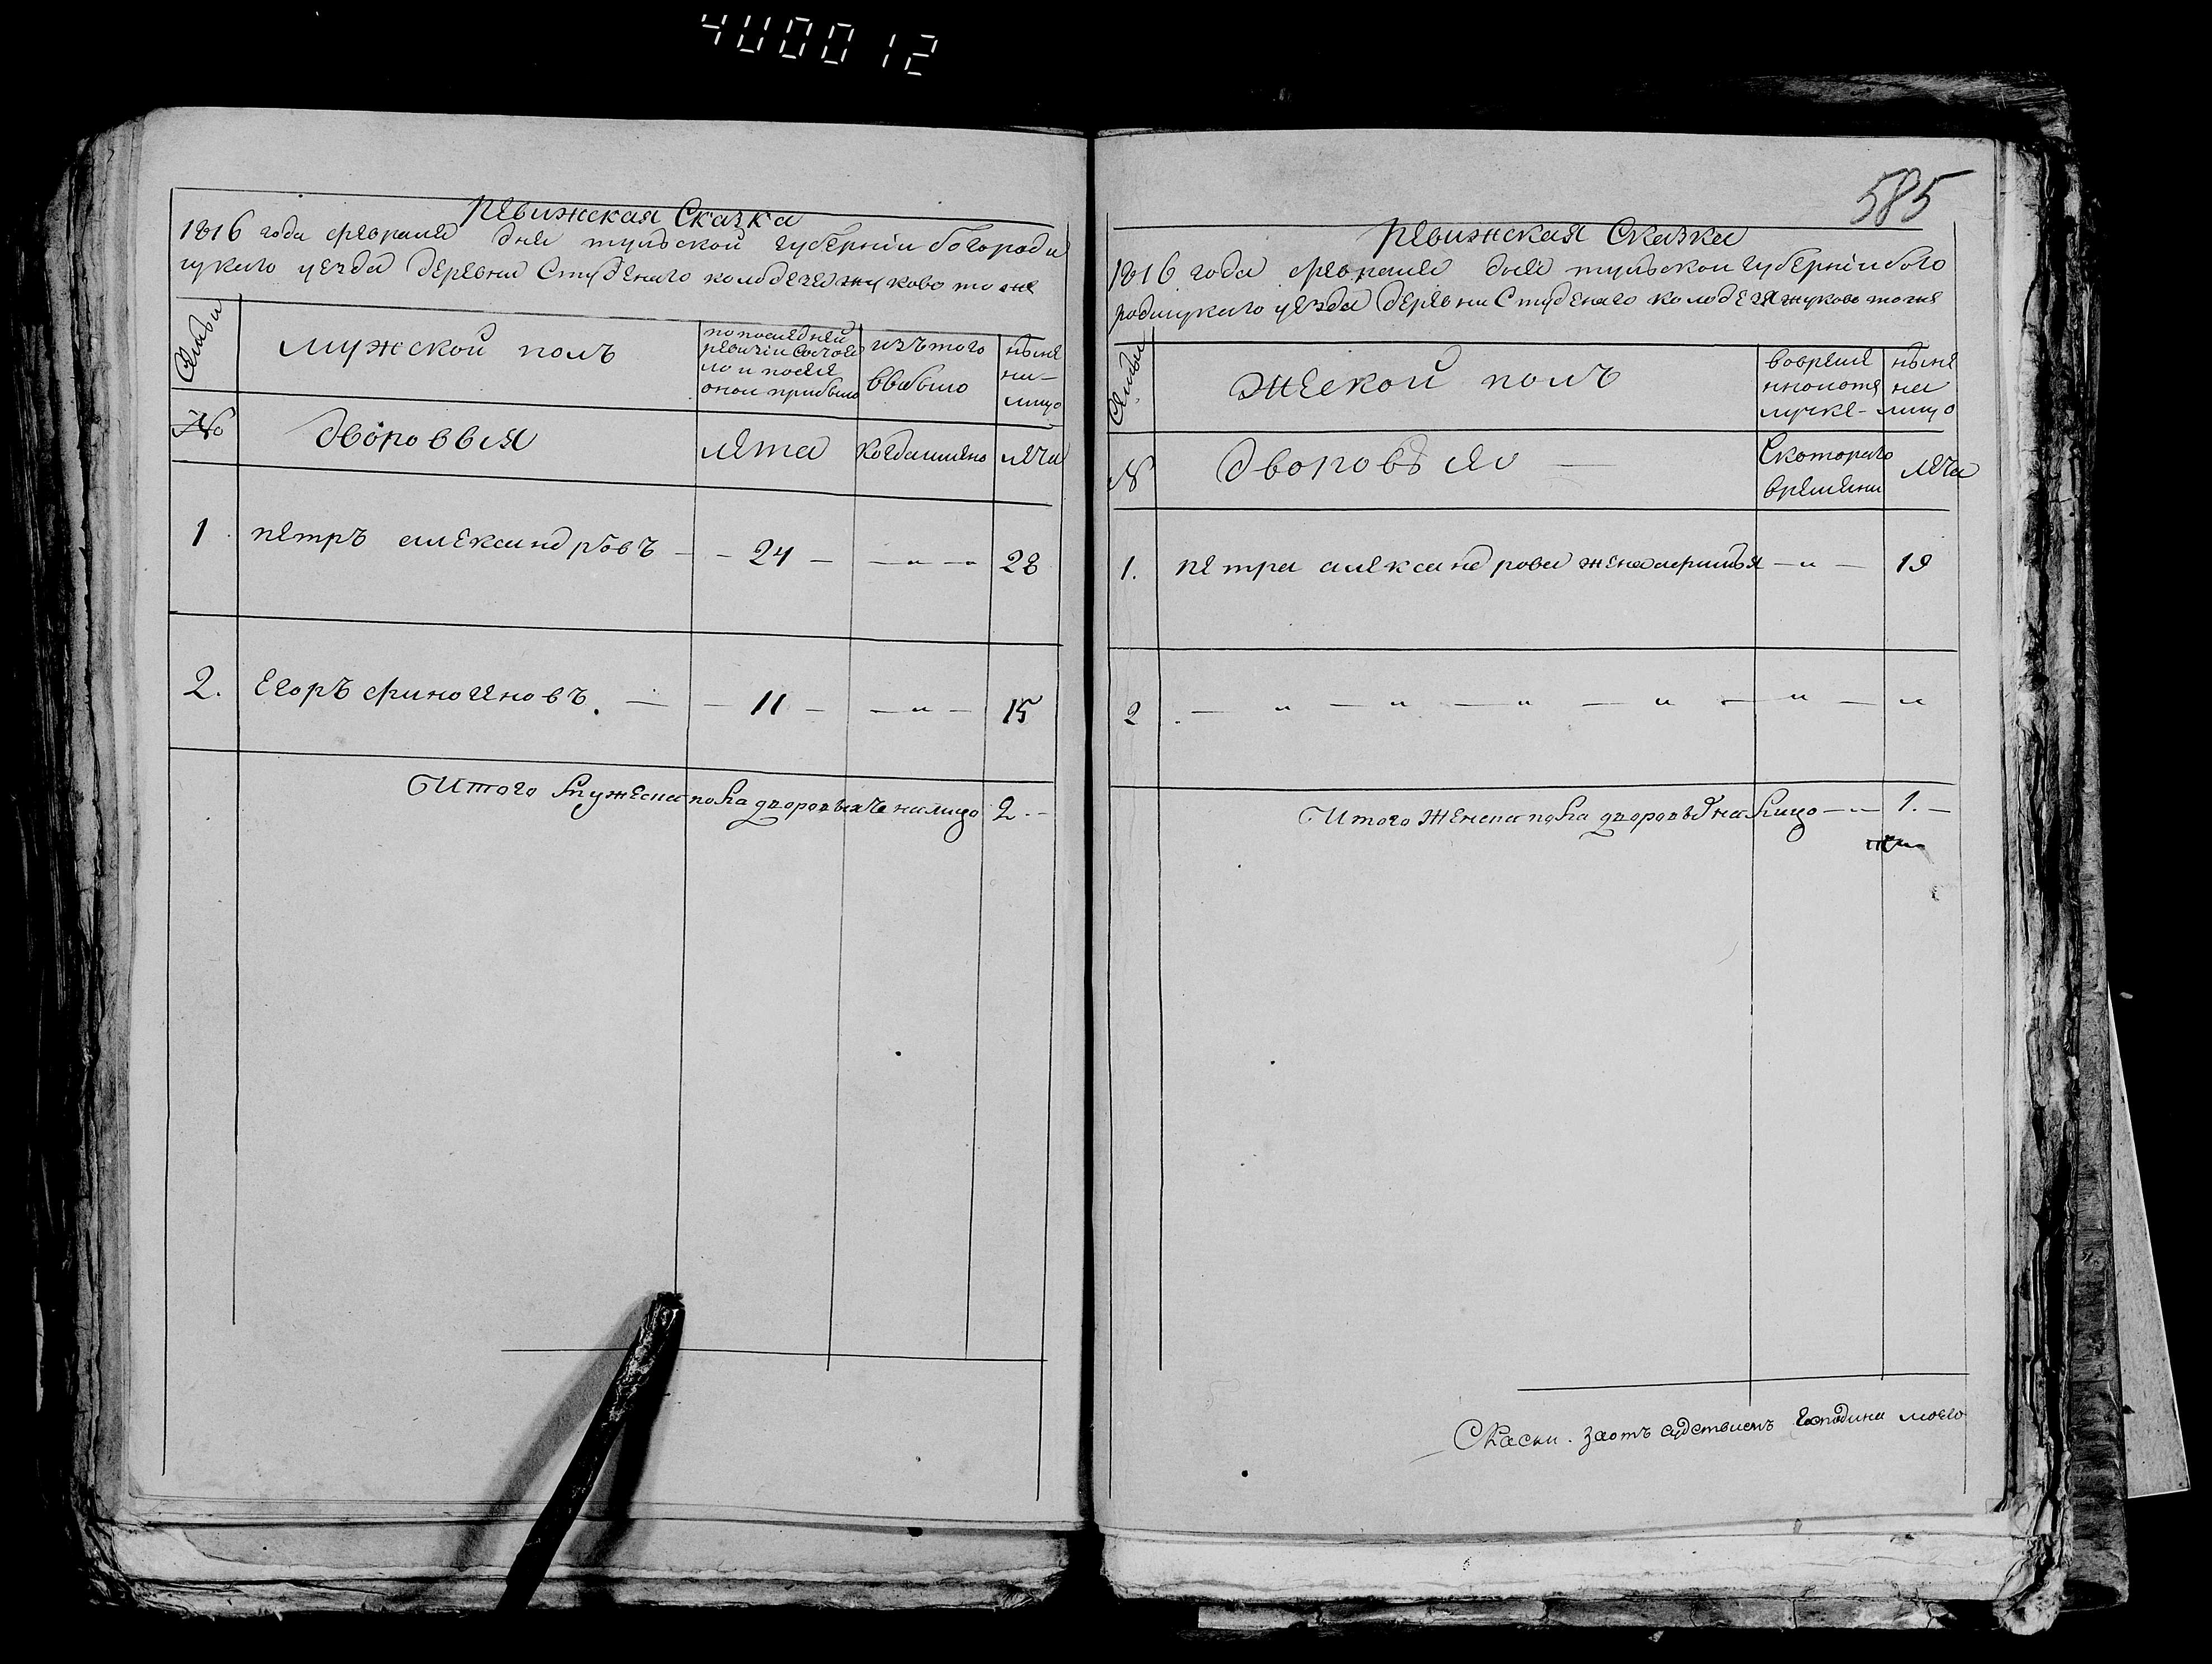 400012
ревижская Сказка
1816 года февраля дня тульской губернiи богороди
цкаго уезда деревни Студенаго колодезя жуково то же
Семьи
мужской полъ
по последней
ревизiи состоя
ло и после
оной прибыло
изъ того
выбыло
ныне
на-
лицо
№
дворовыя
лета
когда имяно
лета
1
петръ александровъ - - 24 - - „ - 28
2. Егоръ финогеновъ. - - 11 - - „ - 15
Итого мужеска пола дворовых на лицо 2. -
585
ревижская Сказка
1816 года февраля дня тульской губернiи бого
родицкаго уезда деревни Студенаго колодезя жуково то же
Семьи
женской полъ
во време
нной отя
лучке-
ныне
на
лицо
№
дворовыя -
С котораго
времени
лета
1. петра александрова жена - „ - 19
2 . - „ - „ - „ - „ - „ - „
Итого женска пола дворовых на лицо - - 1. -
Скаски. за отъ судствиемъ Господина моего